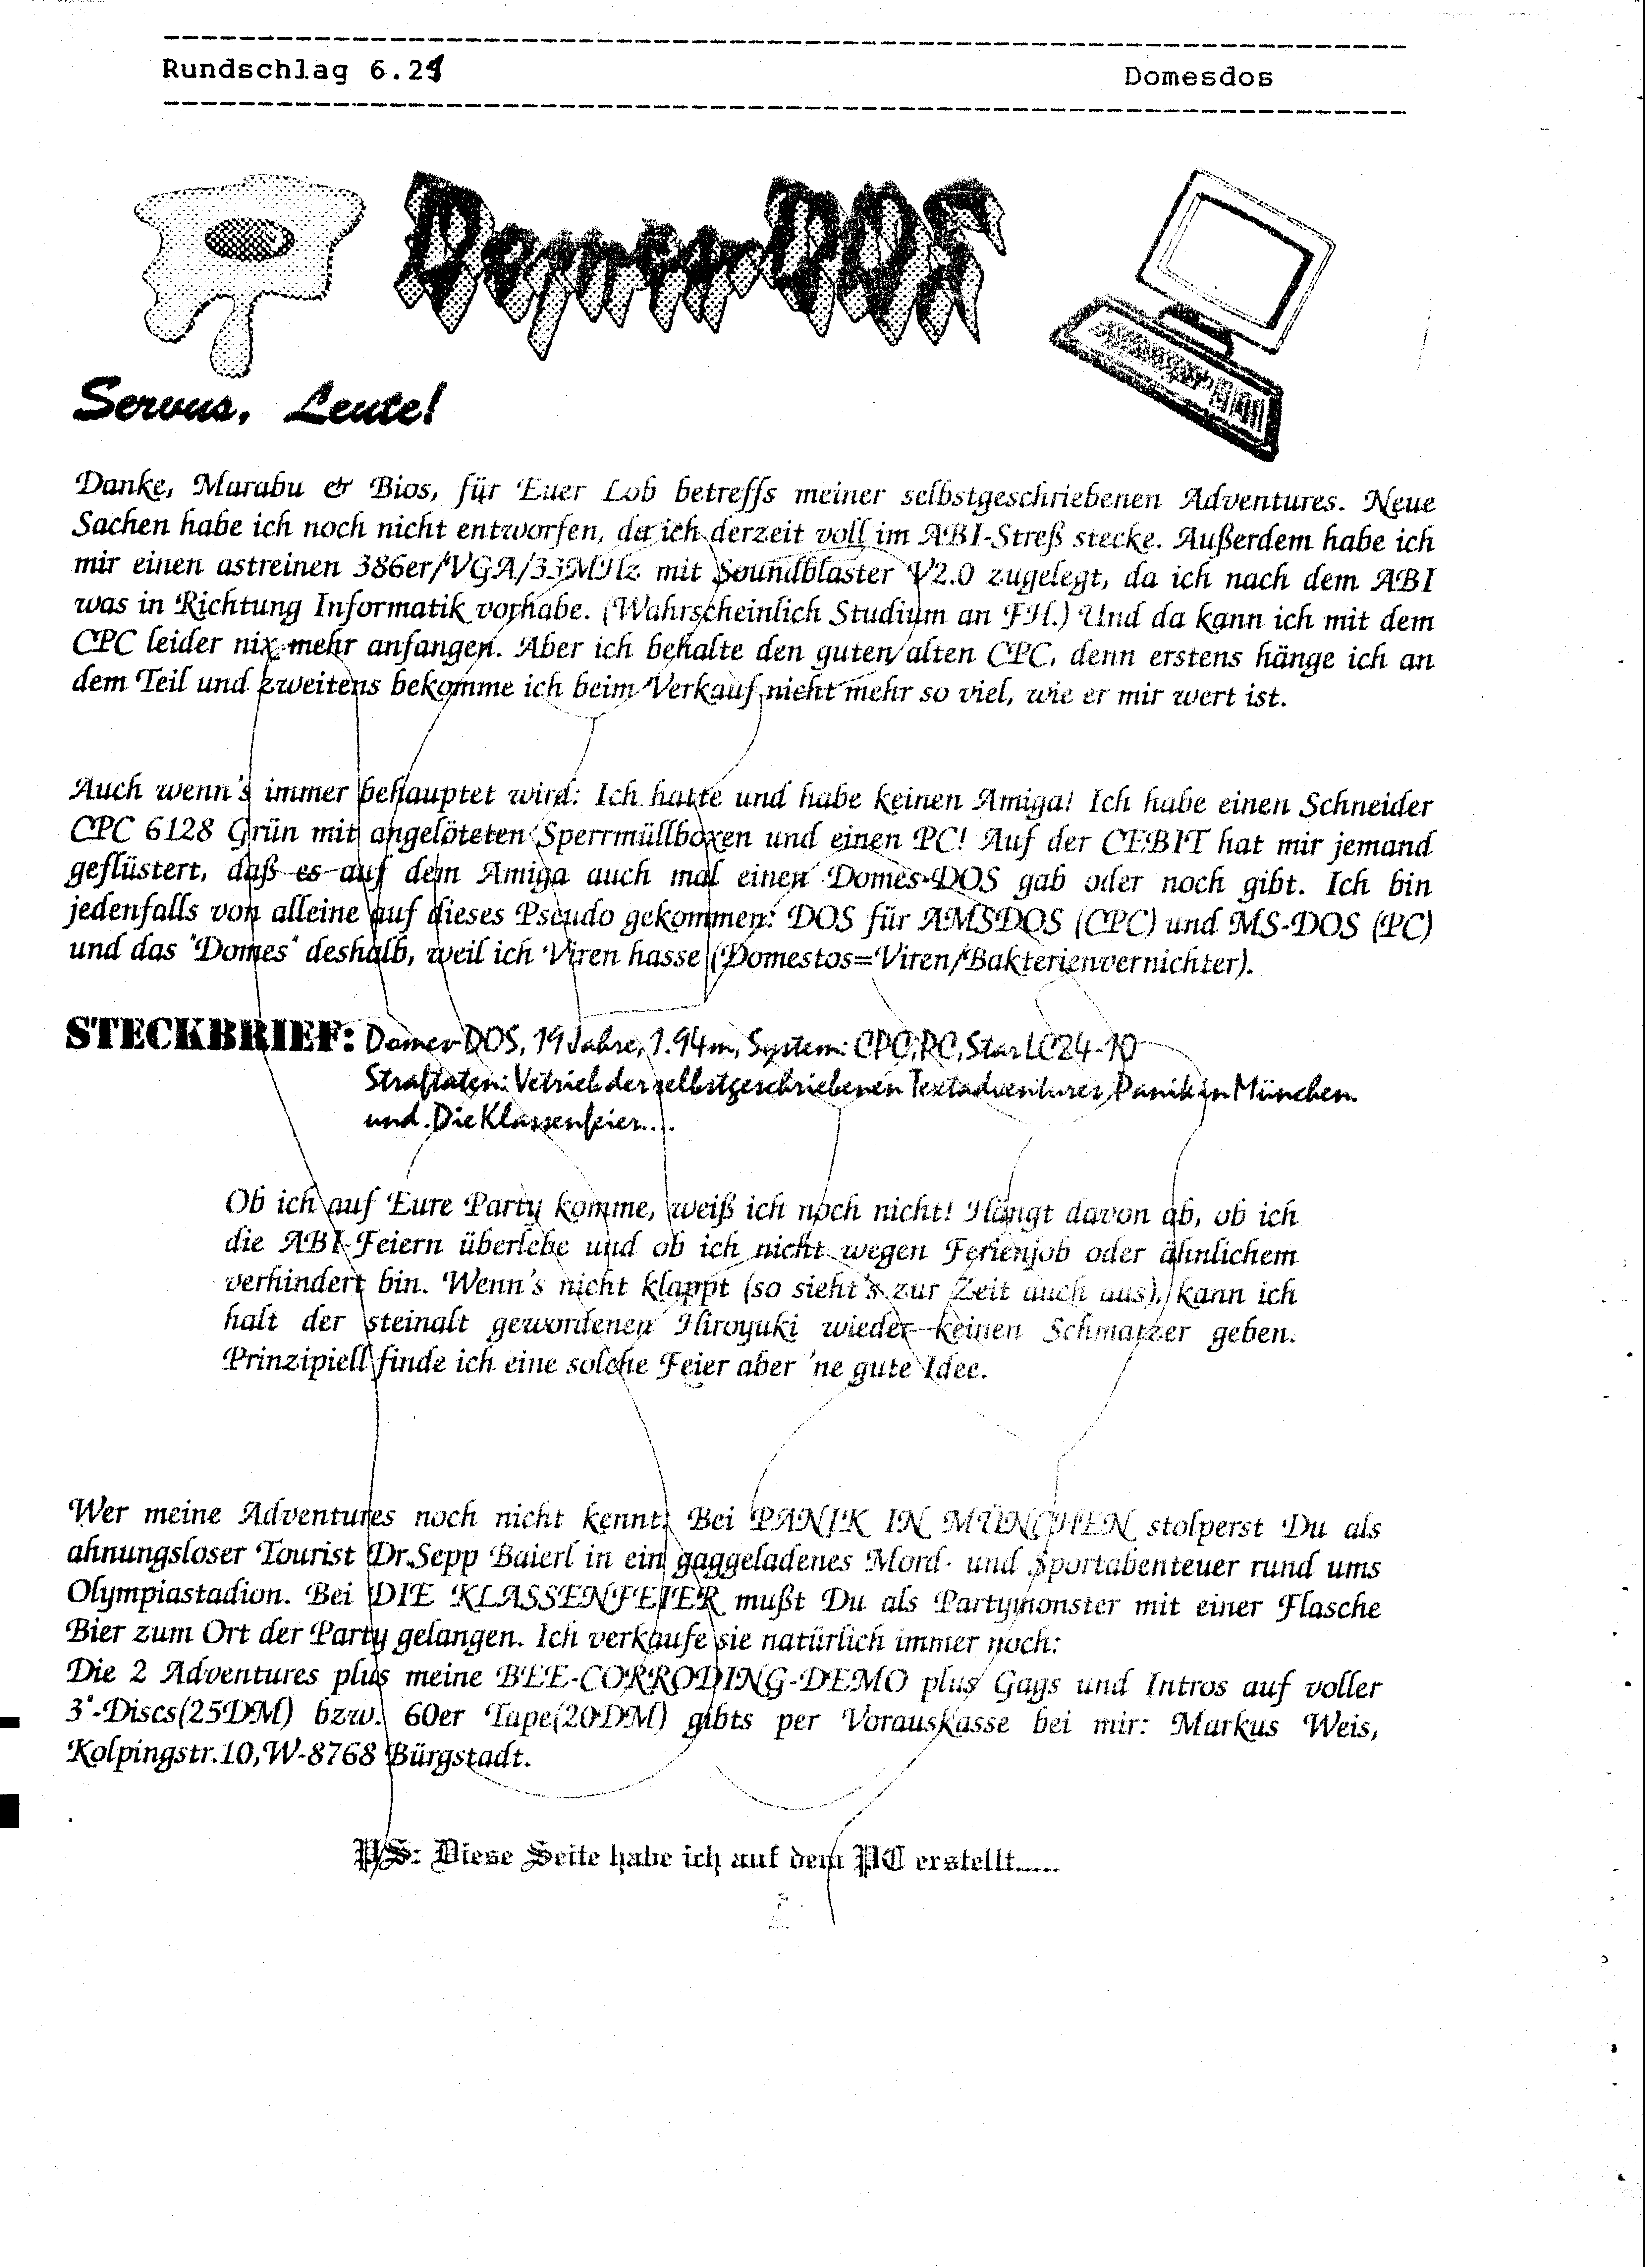 Rundschlag 6.21
Domesdos
Domes-DOS
Servus, Leute!
Danke, Marabu & Bios, für Euer Lob betreffs meiner selbstgeschriebenen Adventures. Neue
Sachen habe ich noch nicht entworfen, da ich derzeit voll im ABI-Streß stecke. Außerdem habe ich
mir einen astreinen 386er/VGA/33MHz mit Soundblaster V2.0 zugelegt, da ich nach dem ABI
was in Richtung Informatik vorhabe. (Wahrscheinlich Studium an FH.) Und da kann ich mit dem
CPC leider nix mehr anfangen. Aber ich behalte den guten alten CPC, denn erstens hänge ich an
dem Teil und zweitens bekomme ich beim Verkauf nicht mehr so viel, wie er mir wert ist.
Auch wenn's immer behauptet wird: Ich hatte und habe keinen Amiga! Ich habe einen Schneider
CPC 6128 Grün mit angelöteten Sperrmüllboxen und einen PC! Auf der CEBIT hat mir jemand
geflüstert, daß es auf dem Amiga auch mal einen Domes-DOS gab oder noch gibt. Ich bin
jedenfalls von alleine auf dieses Pseudo gekommen: DOS für AMSDOS (CPC) und MS-DOS (PC)
und das "Domes" deshalb, weil ich Viren hasse (Domestos=Viren/Bakterienvernichter).
STECKBRIEF: Domes-DOS, 19 Jahre, 1.94m, System: CPC, PC, Star LC24-10
Straftaten: Vetrieb der selbstgeschriebenen Textadventures, Panik in München.
und .Die Klassenfeier....
Ob ich auf Eure Party komme, weiß ich noch nicht! Hängt davon ab, ob ich
die ABI-Feiern überlebe und ob ich nicht wegen Ferienjob oder ähnlichem
verhindert bin. Wenn's nicht klappt (so sieht's zur Zeit auch aus), kann ich
halt der steinalt gewordenen Hiroyuki wieder keinen Schmatzer geben.
Prinzipiell finde ich eine solche Feier aber 'ne gute Idee.
Wer meine Adventures noch nicht kennt: Bei PANIK IN MÜNCHEN stolperst Du als
ahnungsloser Tourist Dr.Sepp Baierl in ein gaggeladenes Mord- und Sportabenteuer rund ums
Olympiastadion. Bei DIE KLASSENFEIER mußt Du als Partymonster mit einer Flasche
Bier zum Ort der Party gelangen. Ich verkaufe sie natürlich immer noch:
Die 2 Adventures plus meine BEE-CORRODING-DEMO plus Gags und Intros auf voller
3"-Discs(25DM) bzw. 60er Tape(20DM) gibts per Vorauskasse bei mir: Markus Weis,
Kolpingstr.10,W-8768 Bürgstadt.
PS: Diese Seite habe ich auf dem PC erstellt.....